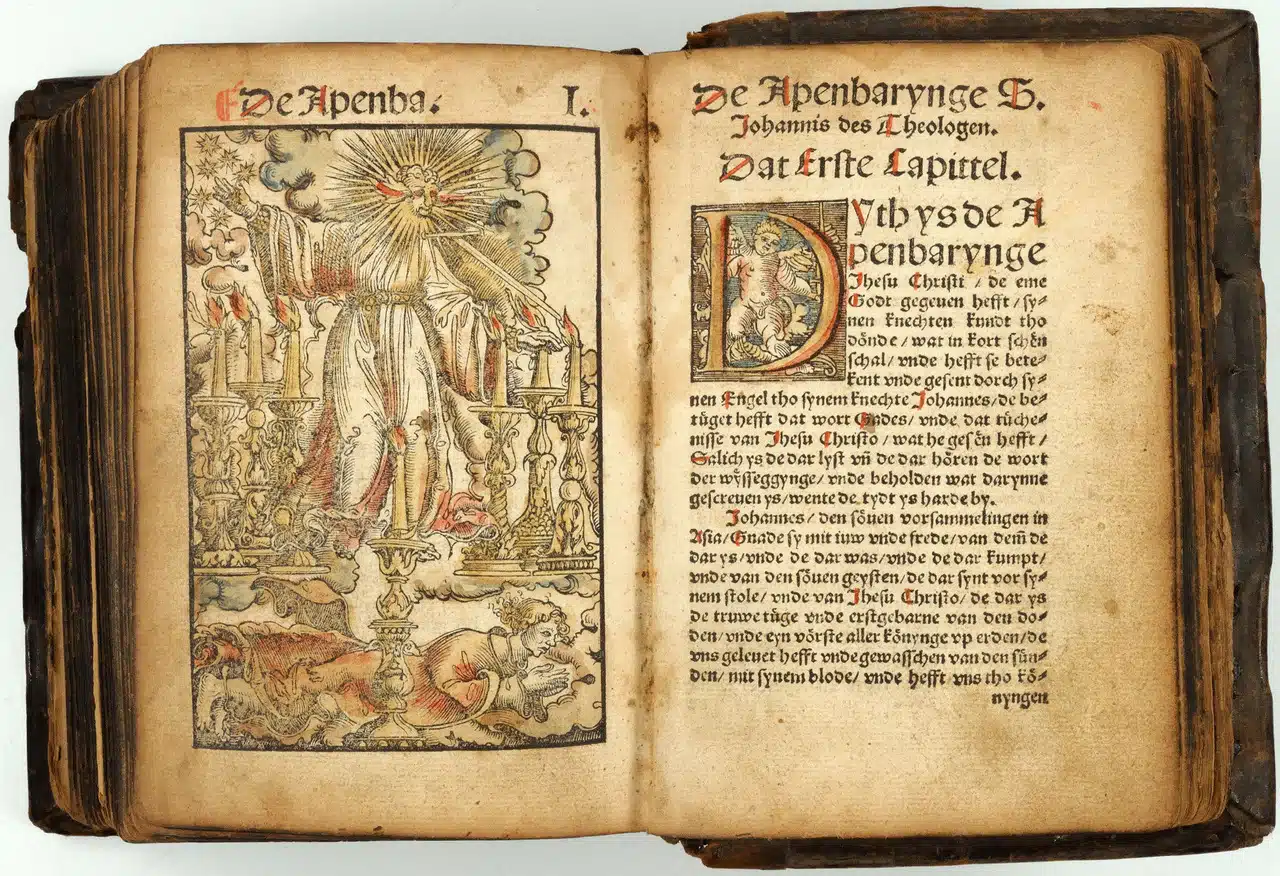 De Apenba.
I.
De Apenbarynge S.
Johannis des Theologen.
Dat Erste Capittel.
Dyth ys de A
penbarynge
Jhesu Christi / de eme
Godt gegeuen hefft / sy⸗
nen knechten kundt tho
dönde / wat in kort schēn
schal / vnde hefft se bete⸗
kent vnde gesent dorch sy⸗
nen Engel tho synem knechte Johannes / de be⸗
tüget hefft dat wort Gades / vnde dat tüche⸗
nisse van Jhesu Christo / wat he gesēn hefft /
Salich ys de dar lyst vn̄ de dar hören de wort
der wÿsseggynge / vnde beholden wat darynne
gescreuen ys / wente de tydt ys harde by.
Johannes / den söuen vorsammelingen in
Asia / Gnade sy mit iuw vnde frede / van dem̄ de
dar ys / vnde de dar was / vnde de dar kumpt /
vnde van den söuen geysten / de dar synt vor sy⸗
nem stole / vnde van Jhesu Christo / de dar ys
de truwe tüge vnde erstgebarne van den do⸗
den / vnde eyn vörste aller könynge vp erden / de
vns geleuet hefft vnde gewasschen van den sün⸗
den / mit synem blode / vnde hefft vns tho kö⸗
nyngen